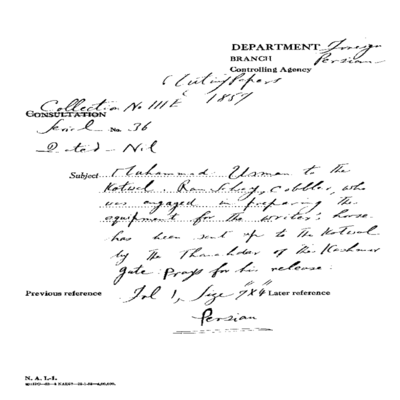 DEPARTMENT Foreign
BRANCH Persian
Controlling Agency
Mutiny Papers
Collection No IIIE 1857
CONSULTATION
Serial No. 36
Dated - Nil
Subject Muhammad Usman to the
Kotwal. Ram Sahay, Cobbler, who
was engaged in preparing the
equipment for the writer's horse
has been sent up to the Kotwal
by the Thanahdar of the Kashmir
Gate. Prays for his release.
Previous reference Fol 1, Size 7"x4" Later reference
Persian
N. A. I.-1.